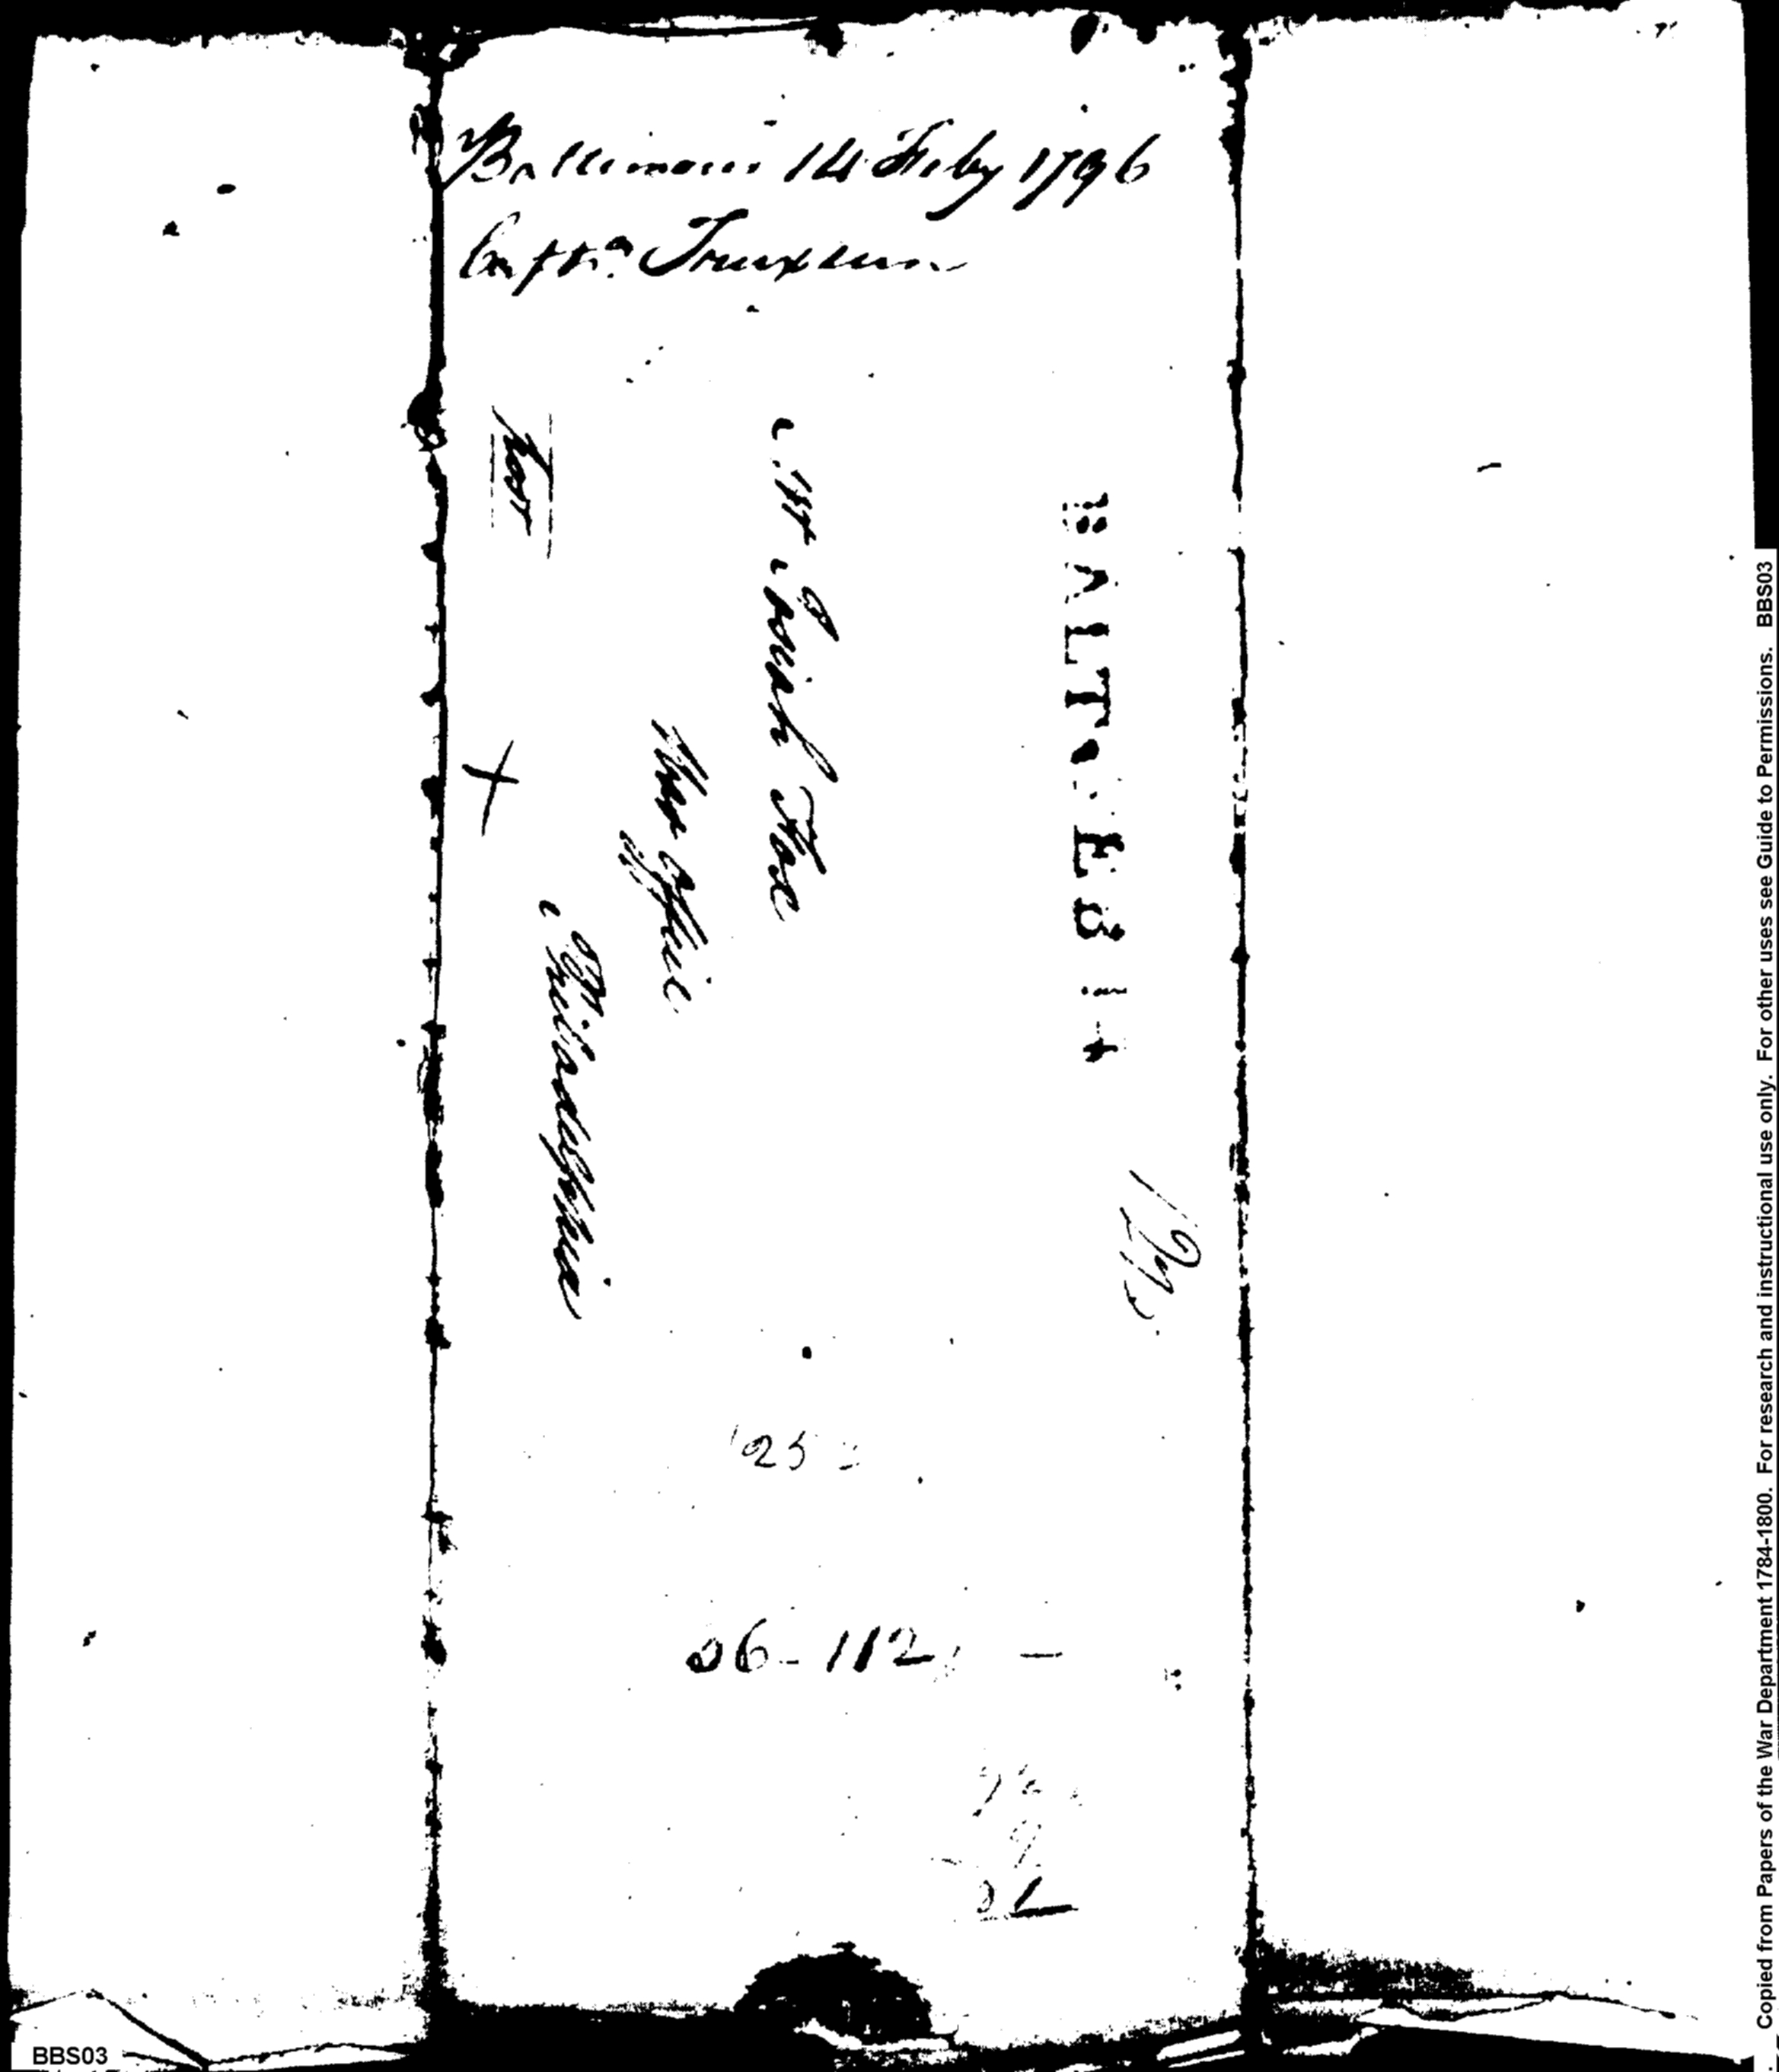 Baltimore 14 Feby 1796
Captn. Truxtun
BALT FEB 14
Mr. Josiah Fox
War Office
Philadelphia
Post
X
25
26-112 —
BBS03
Copied from Papers of the War Department 1784-1800. For research and instructional use only. For other uses see Guide to Permissions. BBS03